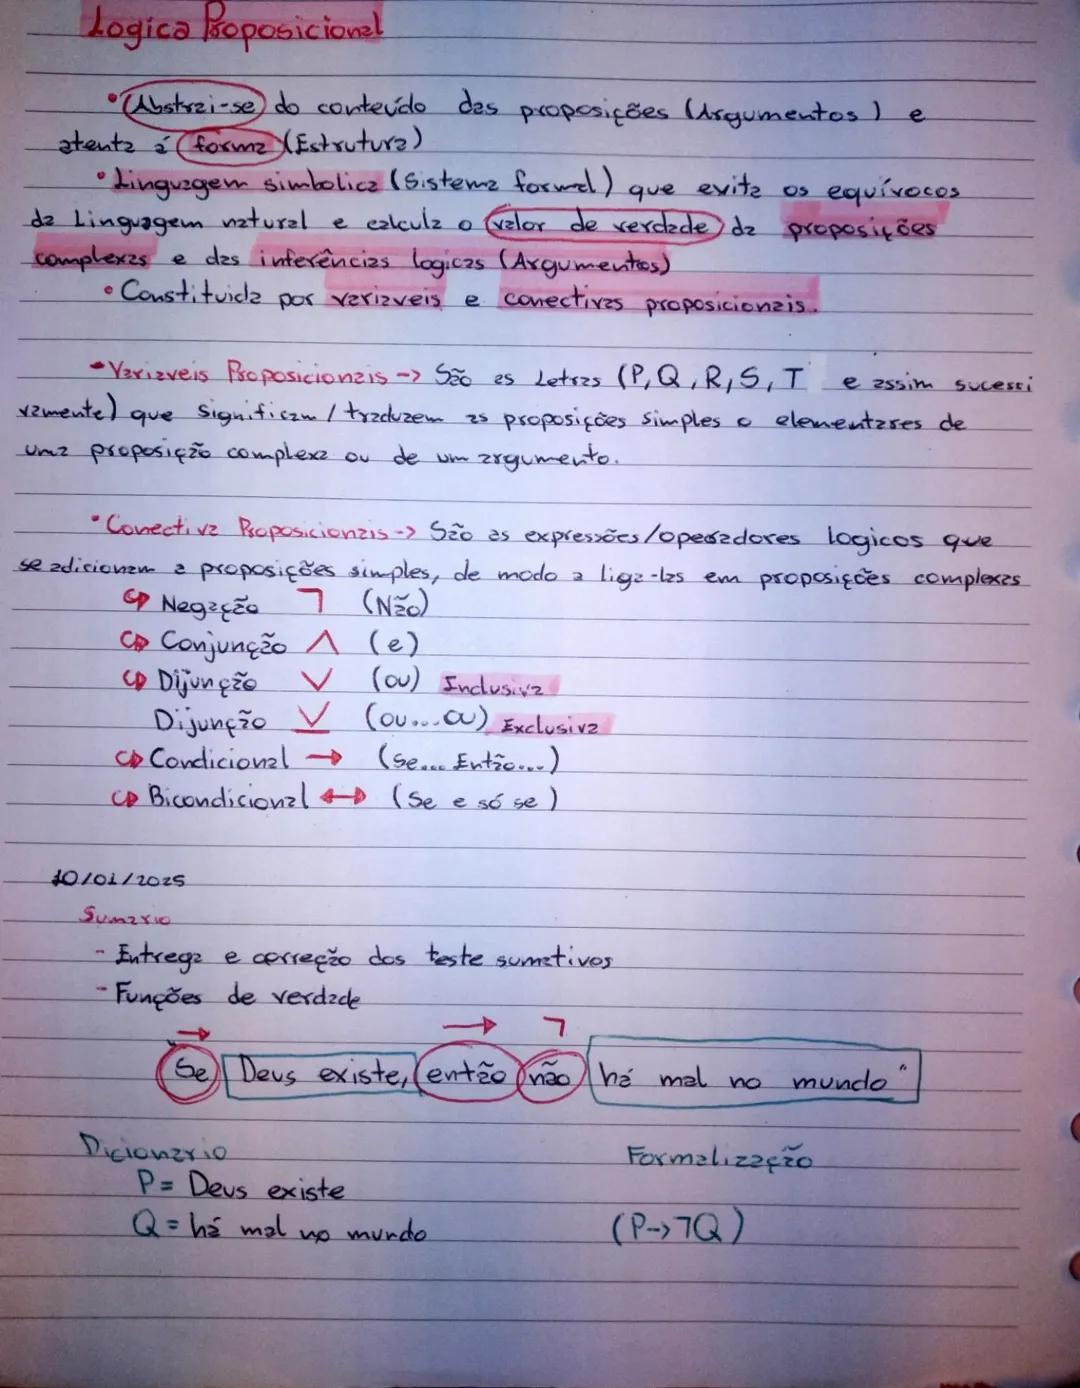 Logica Proposicional
• Abstrai-se do conteúdo das proposições (Argumentos) e
atenta á forma (Estrutura)
• Linguagem simbolica (Sistema formal) que evita os equívocos
da Linguagem natural e calcula o valor de verdade da proposições
complexas e das inferências logicas (Argumentos)
• Constituida por variaveis e conectivas proposicionais.
• Variaveis Proposicionais -> São as Letras (P, Q, R, S, T e assim sucessi
vamente) que significam / traduzem as proposições simples o elementares de
uma proposição complexa ou de um argumento.
• Conectiva Proposicionais -> São as expressões/operadores logicos que
se adicionam a proposições simples, de modo a liga-las em proposições complexas
Negação ¬ (Não)
Conjunção ∧ (e)
Dijunção ∨ (ou) Inclusiva
Dijunção ⊻ (ou...ou) Exclusiva
Condicional → (Se... Então...)
Bicondicional ↔ (Se e só se)
10/01/2025
Sumario
- Entrega e correção dos teste sumativos
- Funções de verdade
→ → ¬
"Se Deus existe, então não há mal no mundo"
Dicionario Formalização
P = Deus existe
Q = há mal no mundo (P->¬Q)